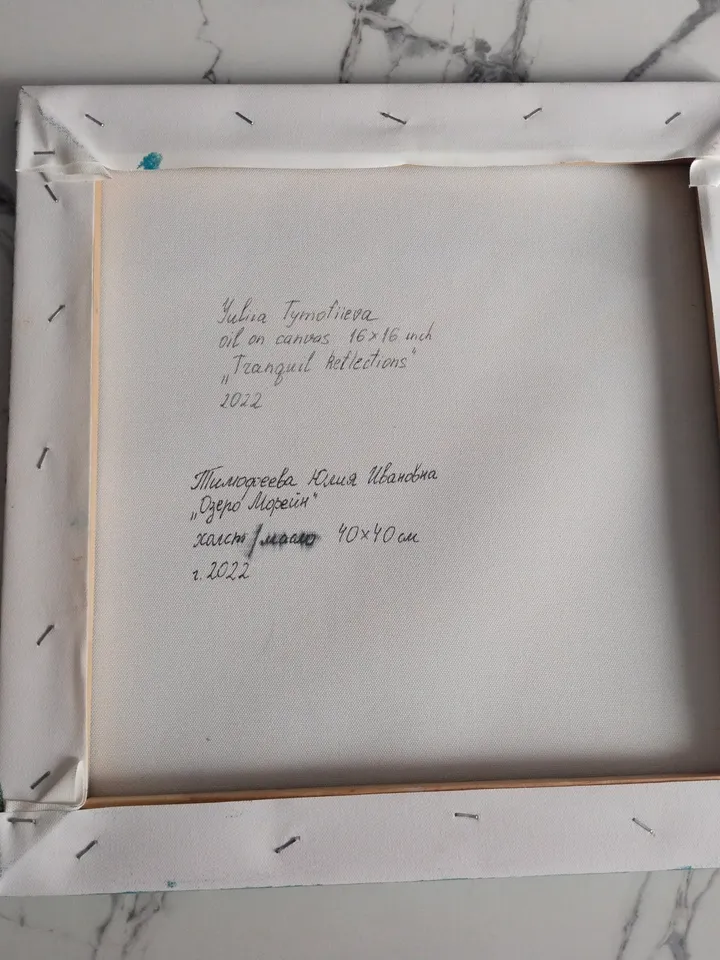 Yuliia Tymofiieva
oil on canvas 16×16 inch
„Tranquil Reflections"
2022
Тимофеева Юлия Ивановна
„Озеро Морейн"
холст/масло 40×40 см
г. 2022